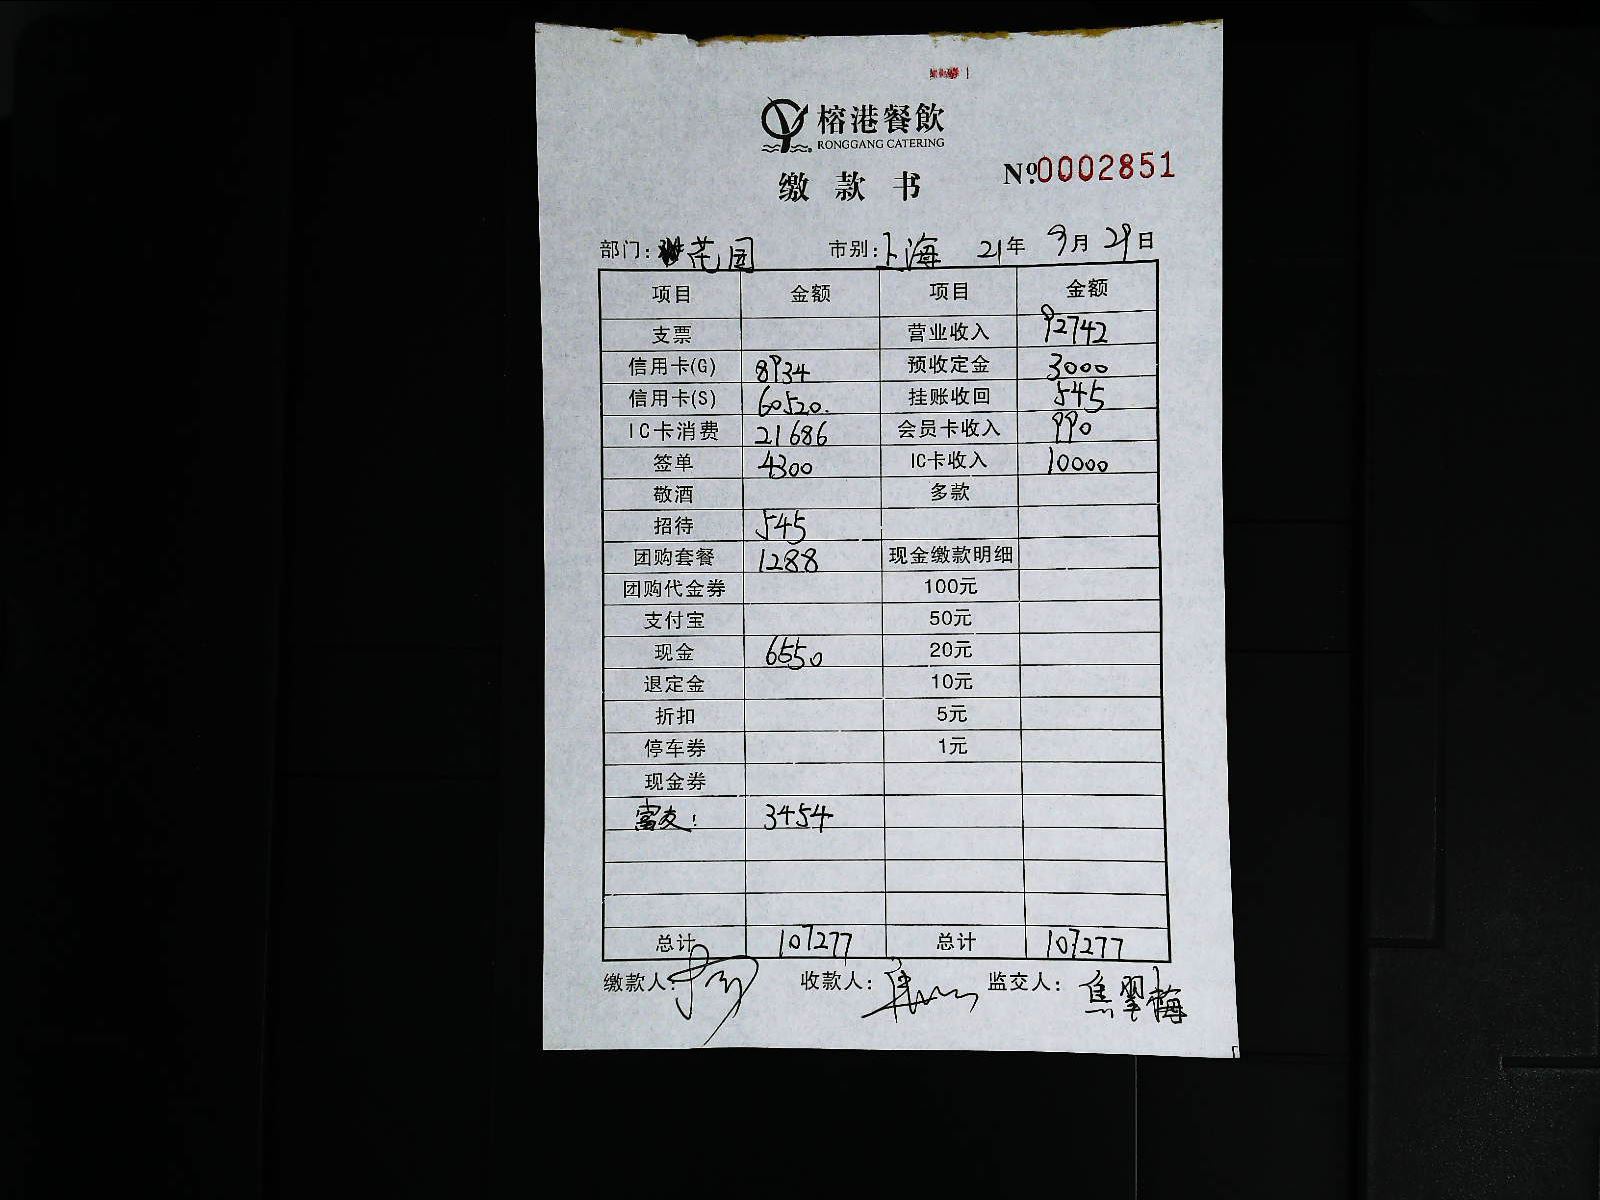 榕港餐飲
RONGGANG CATERING
缴款书
Nº 0002851
部门: 花园 市别: 上海 21年 9月 29日
项目 金额 项目 金额
支票 营业收入 92742
信用卡(G) 8934 预收定金 3000
信用卡(S) 60520. 挂账收回 545
IC卡消费 21686 会员卡收入 990
签单 4300 IC卡收入 10000
敬酒 多款
招待 545
团购套餐 1288 现金缴款明细
团购代金券 100元
支付宝 50元
现金 6550 20元
退定金 10元
折扣 5元
停车券 1元
现金券
富友: 3454
总计 107277 总计 107277
缴款人: 收款人: 监交人: 焦翠梅